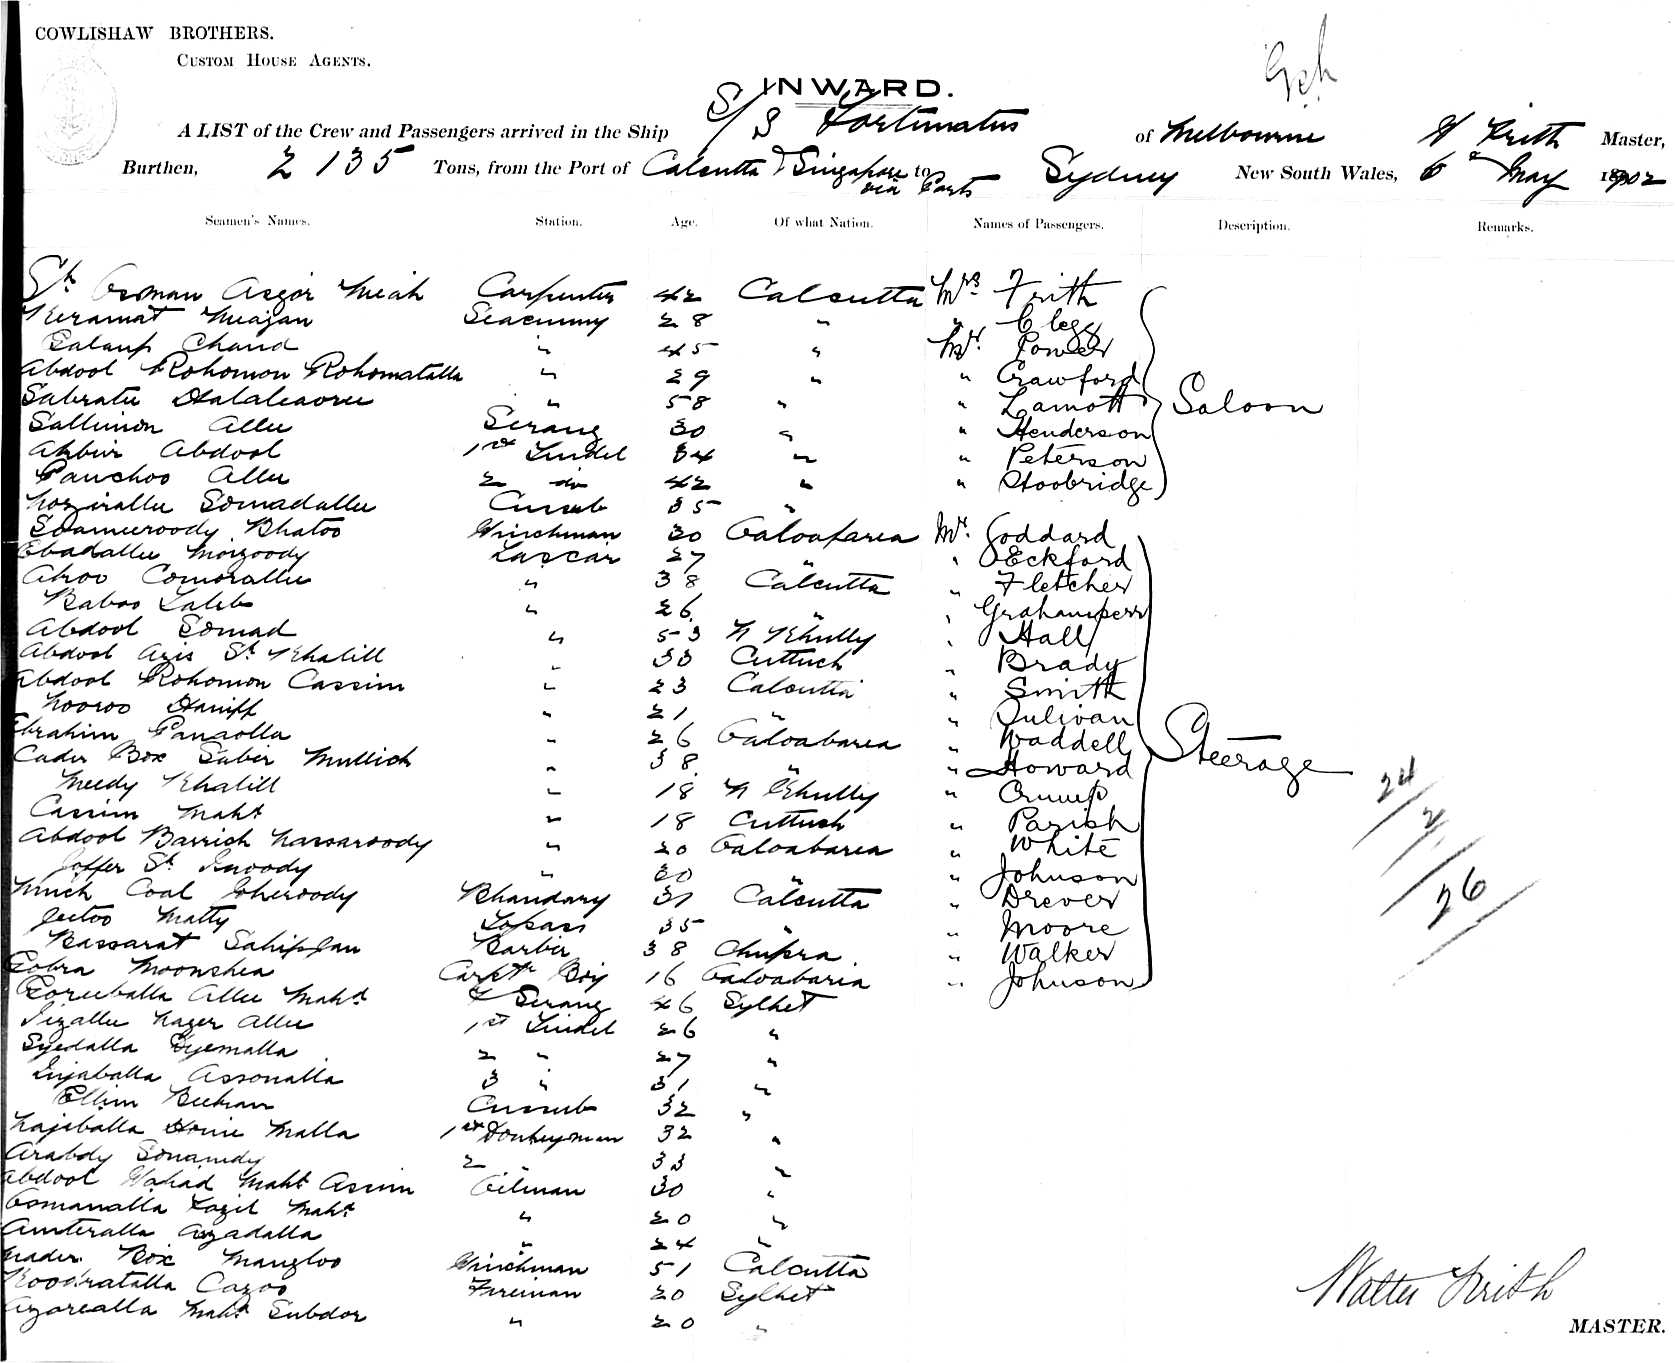 COWLISHAW BROTHERS.
CUSTOM HOUSE AGENTS.
INWARD.
A LIST of the Crew and Passengers arrived in the Ship S/S Fortunatus of Melbourne W Frith Master,
Burthen, 2135 Tons, from the Port of Calcutta & Singapore via Ports to Sydney New South Wales, 6th May 1902
Seamen's Names. Station. Age. Of what Nation. Names of Passengers. Description. Remarks.
Sk Osman Asgor Meah Carpenter 42 Calcutta Mrs Frith
Keramat Meazan Seacunny 28 " " Clegg
Golaup Chand " 45 " Mr. Power
Abdool Rohomon Rohomatalla " 29 " " Crawford
Subratee " 58 " " Lamott Saloon
Sallimon Allee Serang 30 " " Henderson
Akbur Abdool 1st Tindel 34 " " Peterson
Panchoo Allee 2 do 42 " " Stoobridge
Somadallee Cussub 35 "
Bhatoo Winchman 30 Galoaparea Mr. Goddard
Ebadallee Moizoody Lascar 27 " " Eckford
Comorallee " 38 Calcutta " Fletcher
Baboo Taleb " 26 " "
Abdool Somad " 53 N Khully " Hall
Abdool Azis Sk Khalill " 33 Cuttuck " Brady
Abdool Rohomon Cassim " 23 Calcutta " Smith
Nooroo Haniff " 21 " " Sulivan
Ebrahim Panaolla " 26 Galoabarea " Waddell
Cader Box Saber Mullick " 38 " " Howard Steerage
Meedy Khalill " 18 N Khully " Crump
Cassim Maht " 18 Cuttuck " Parish
Abdool Barrick Nassaroody " 20 Galoabarea " White
Joffer Sk " 20 " " Johnson
Coal Joheroody Bhandary 31 Calcutta " Drever
Jeetoo Matty Topass 35 " " Moore
Bassarat Barber 38 Chupra " Walker
Gobra Moonshea Carptr Boy 16 Galoabaria " Johnson
Allee Maht Serang 46 Sylhet
Nazer Allee 1st Tindel 26 "
Syedalla 2 " 27 "
Assonalla 3 " 31 "
Ellim Cussub 32 "
Najeballa Malla 1st Donkeyman 32 "
Arabdy 2 " 33 "
Abdool Wahad Maht Assim Oilman 30 "
Osmanalla Fazil Maht " 20 "
Amteralla Azadalla " 24 "
Nader Box Mangloo Winchman 51 Calcutta
Koodratalla Cazoo Fireman 20 Sylhet
Azorealla Maht Subdor " 20 "
24
2
26
Walter Frith
MASTER.